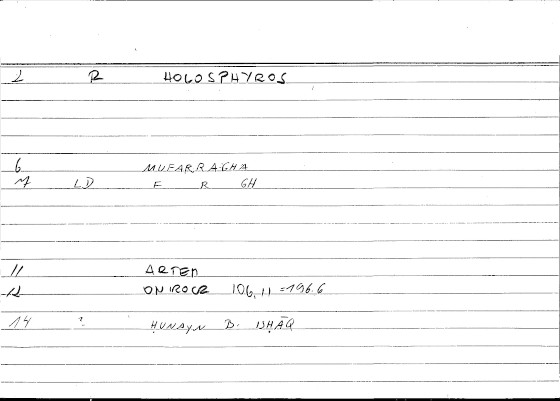 2 R HOLOSPHYROS
6 MUFARRAGHA
7 LD F R GH
11 ARTEM
12 ONIROCR 106,11 = 196.6
14 : ḤUNAYN B. ISḤĀQ